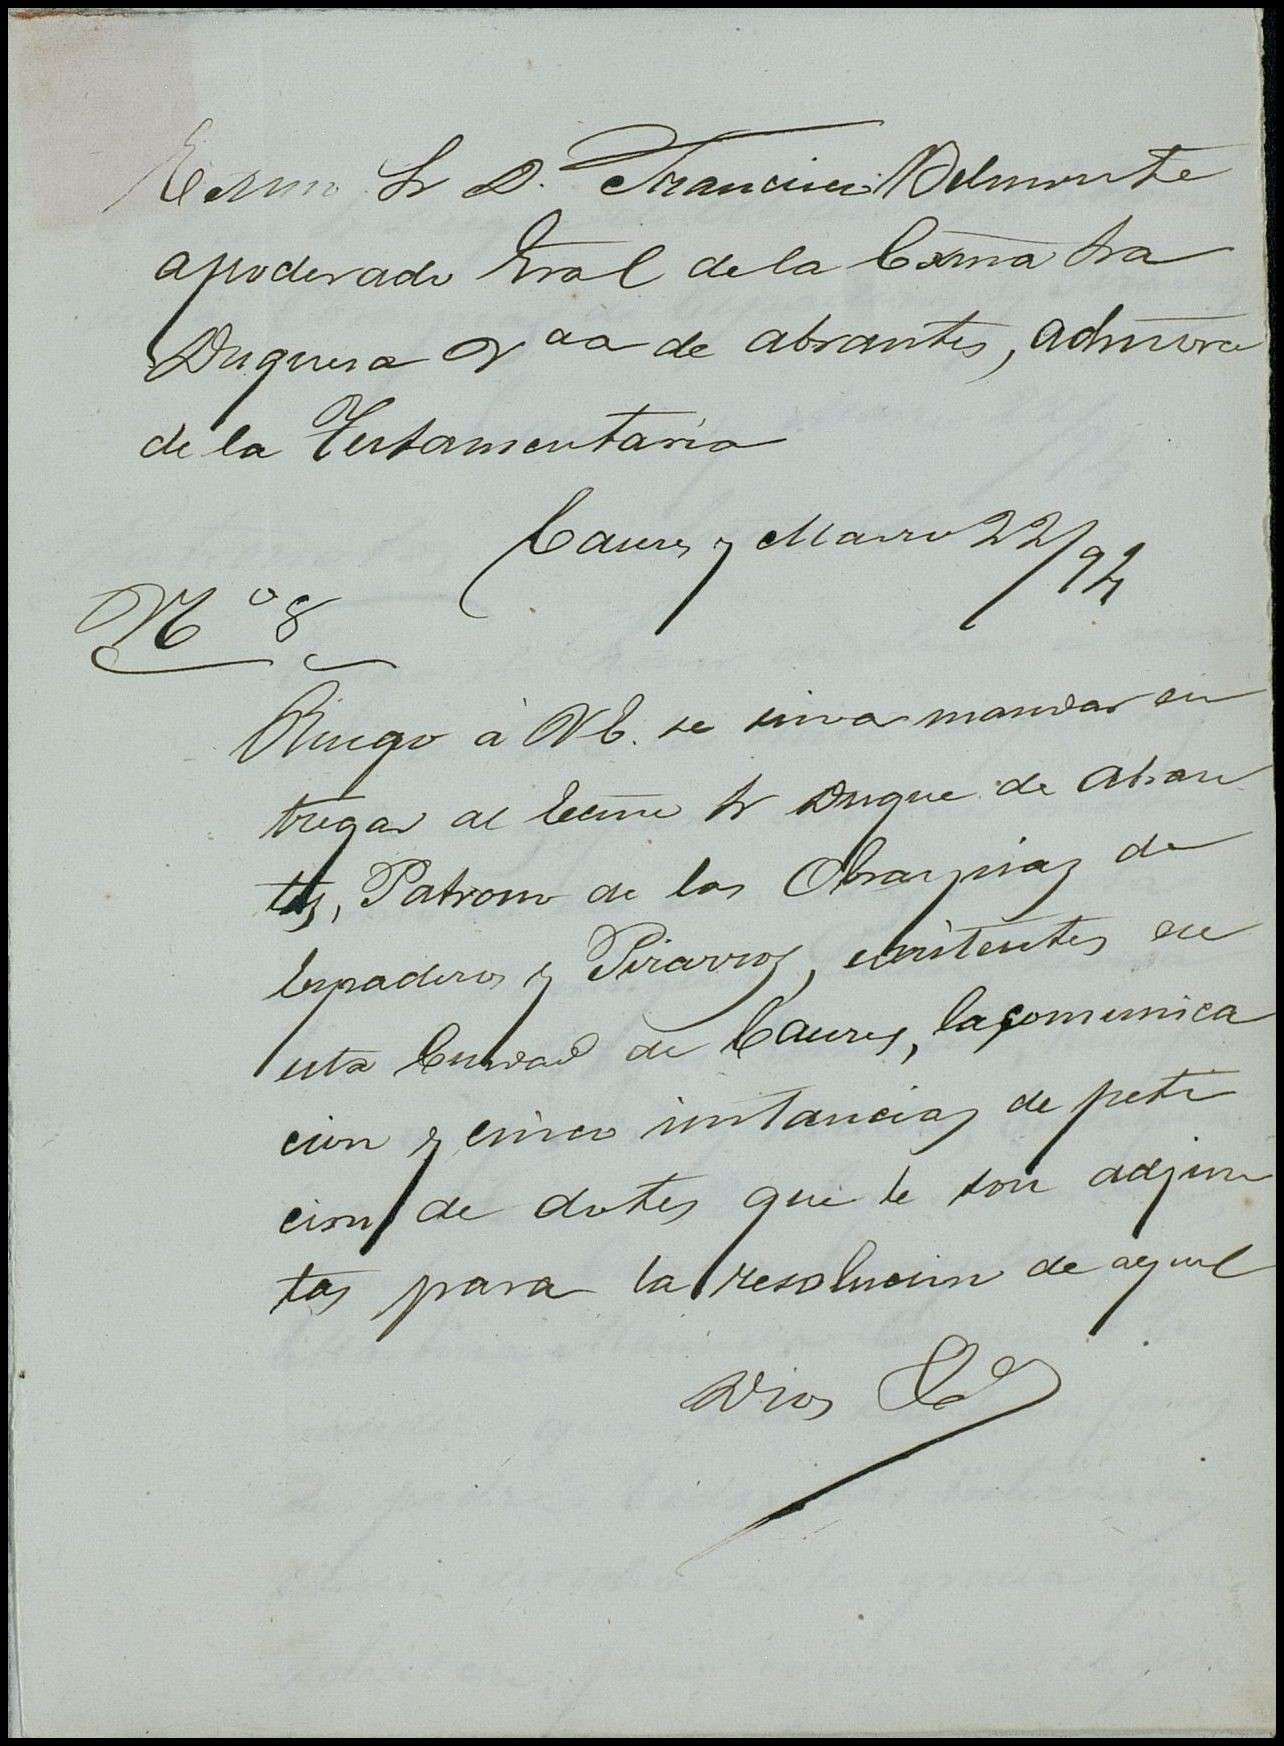 Excmo Sr D. Francisco Belmonte
apoderado Gral de la Excma Sra
Duquesa Vda de Abrantes, admora
de la Testamentaria
Caceres y Marzo 22/94
Nº 8
Ruego á VE. se sirva mandar en
tregar al Excmo Sr Duque de Abran
tes, Patrono de las Obraspias de
Espaderos y Pizarros, existentes en
esta Ciudad de Caceres, la comunica
cion y cinco instancias de peti
cion de dotes que le son adjun
tas para la resolucion de aquel
Dios &